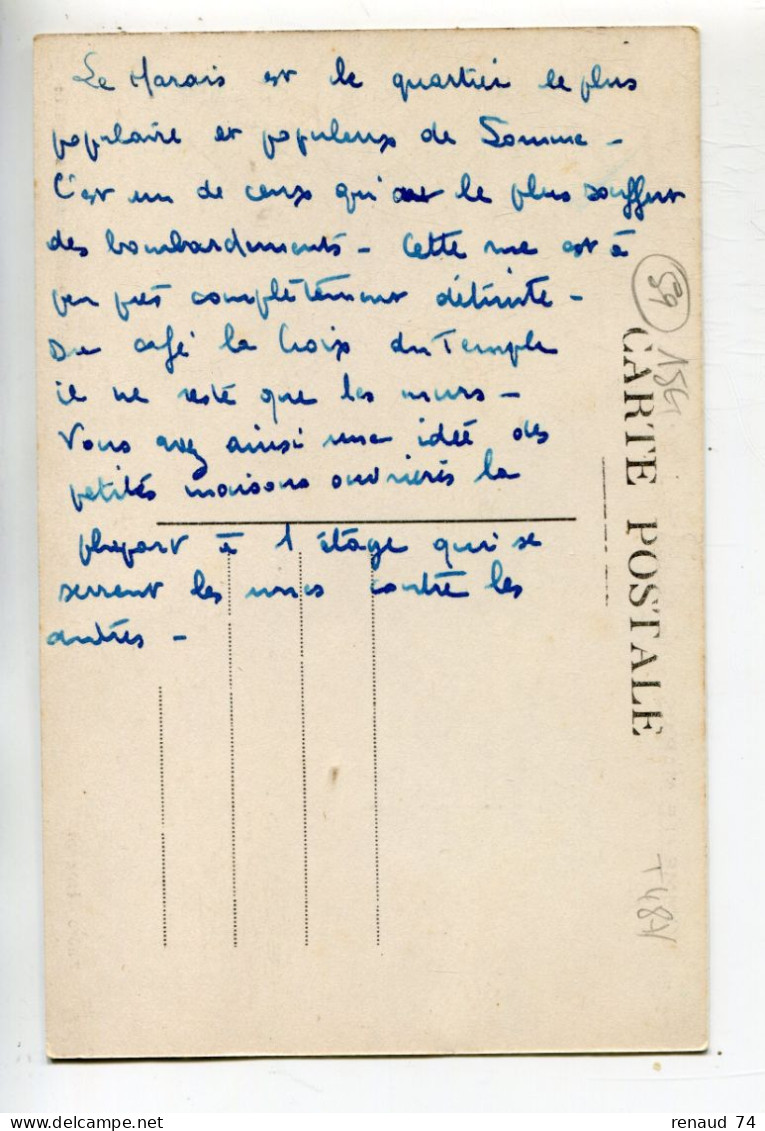 Le Marais est le quartier le plus
populaire et populeux de Somme -
C'est un de ceux qui ont le plus souffert
des bombardements - Cette rue est à
peu près complètement détruite -
Du café la Croix du Temple
il ne reste que les murs -
Vous avez ainsi une idée des
petites maisons ouvrières la
plupart à 1 étage qui se
serrent les unes contre les
autres -
CARTE POSTALE
59
renaud 74